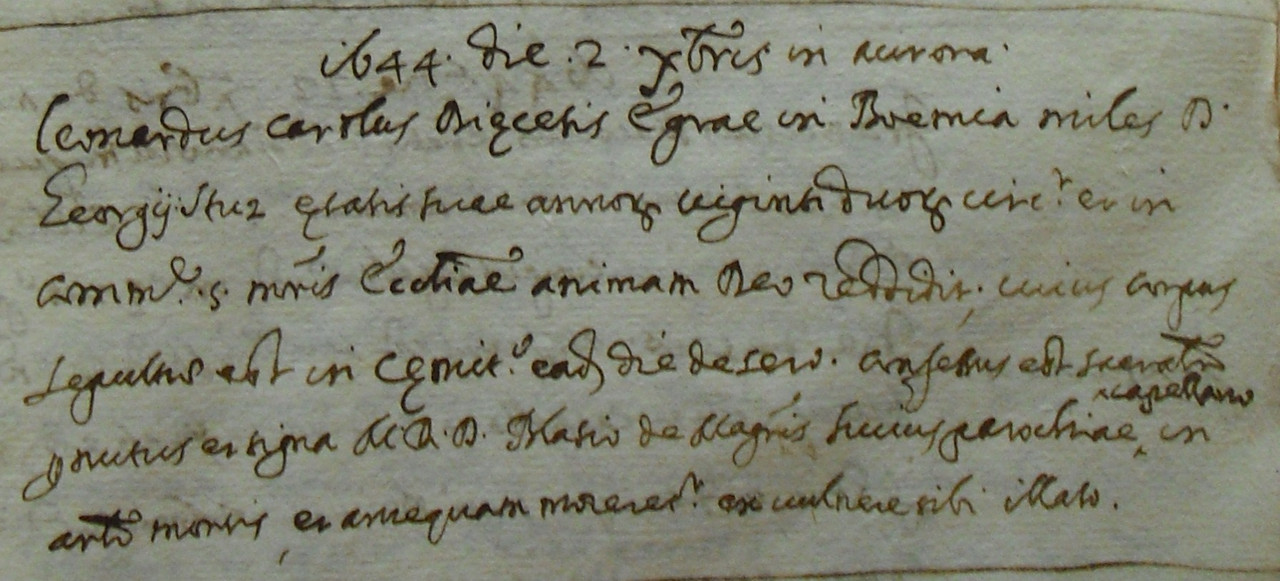 1644. die .2. xbris in aurora.
Leonardus carolus Dięcesis Egrae in Boemia miles D.
Georgij Stuz ętatis suae annorꝫ viginti duorꝫ circr. et in
comme. s. mris Eccliae animam Deo reddidit. cuius corpus
sepultus est in Cęmito. eadꝫ die de sero. confessus est sacratm
ꝑ nutus et signa M.R.D. Blasio de Magris huius parochiae, in
xcapellano
arto mortis, et antequam moreretr. ex vulnere sibi illato.